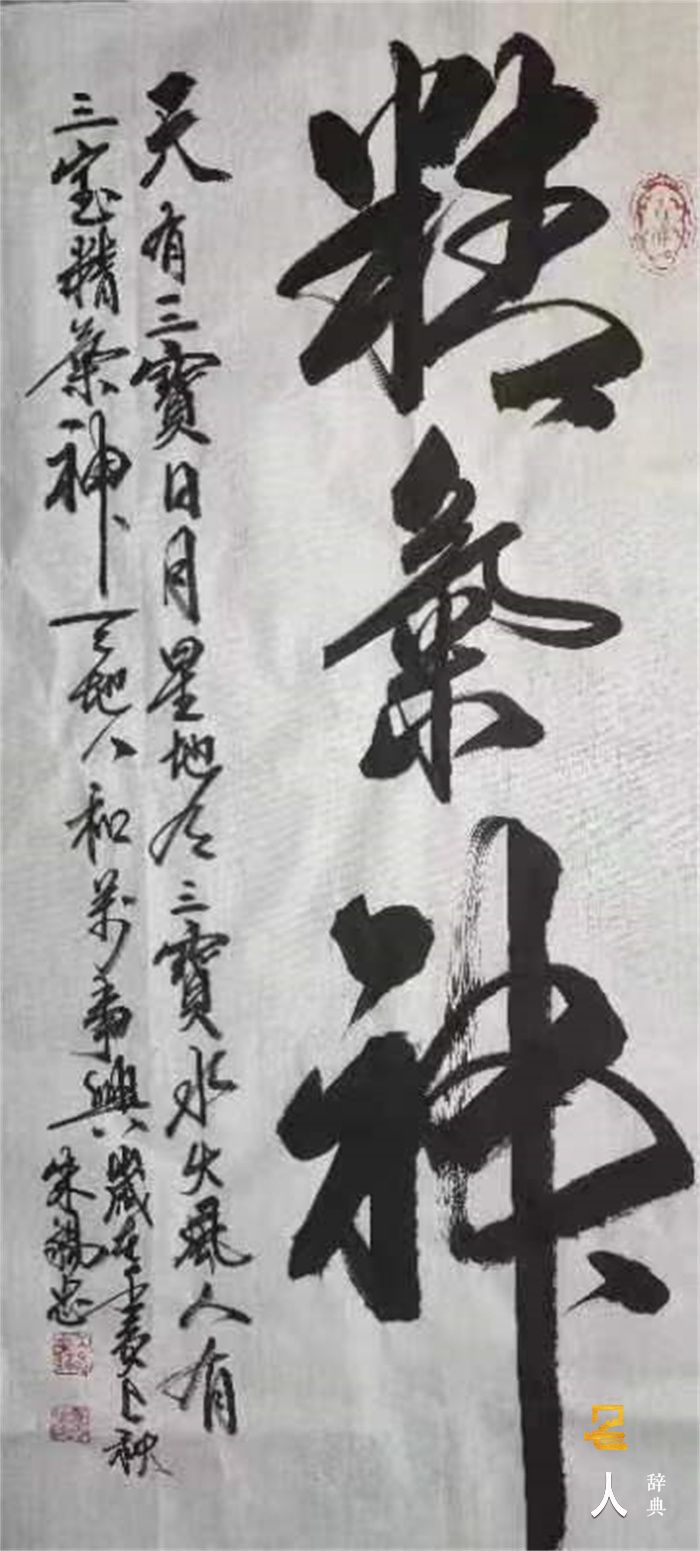 精氣神
天有三寶日月星地有三寶水火風人有
三宝精氣神天地人和萬事興
歲在壬寅秋
朱忠
名人
辞典